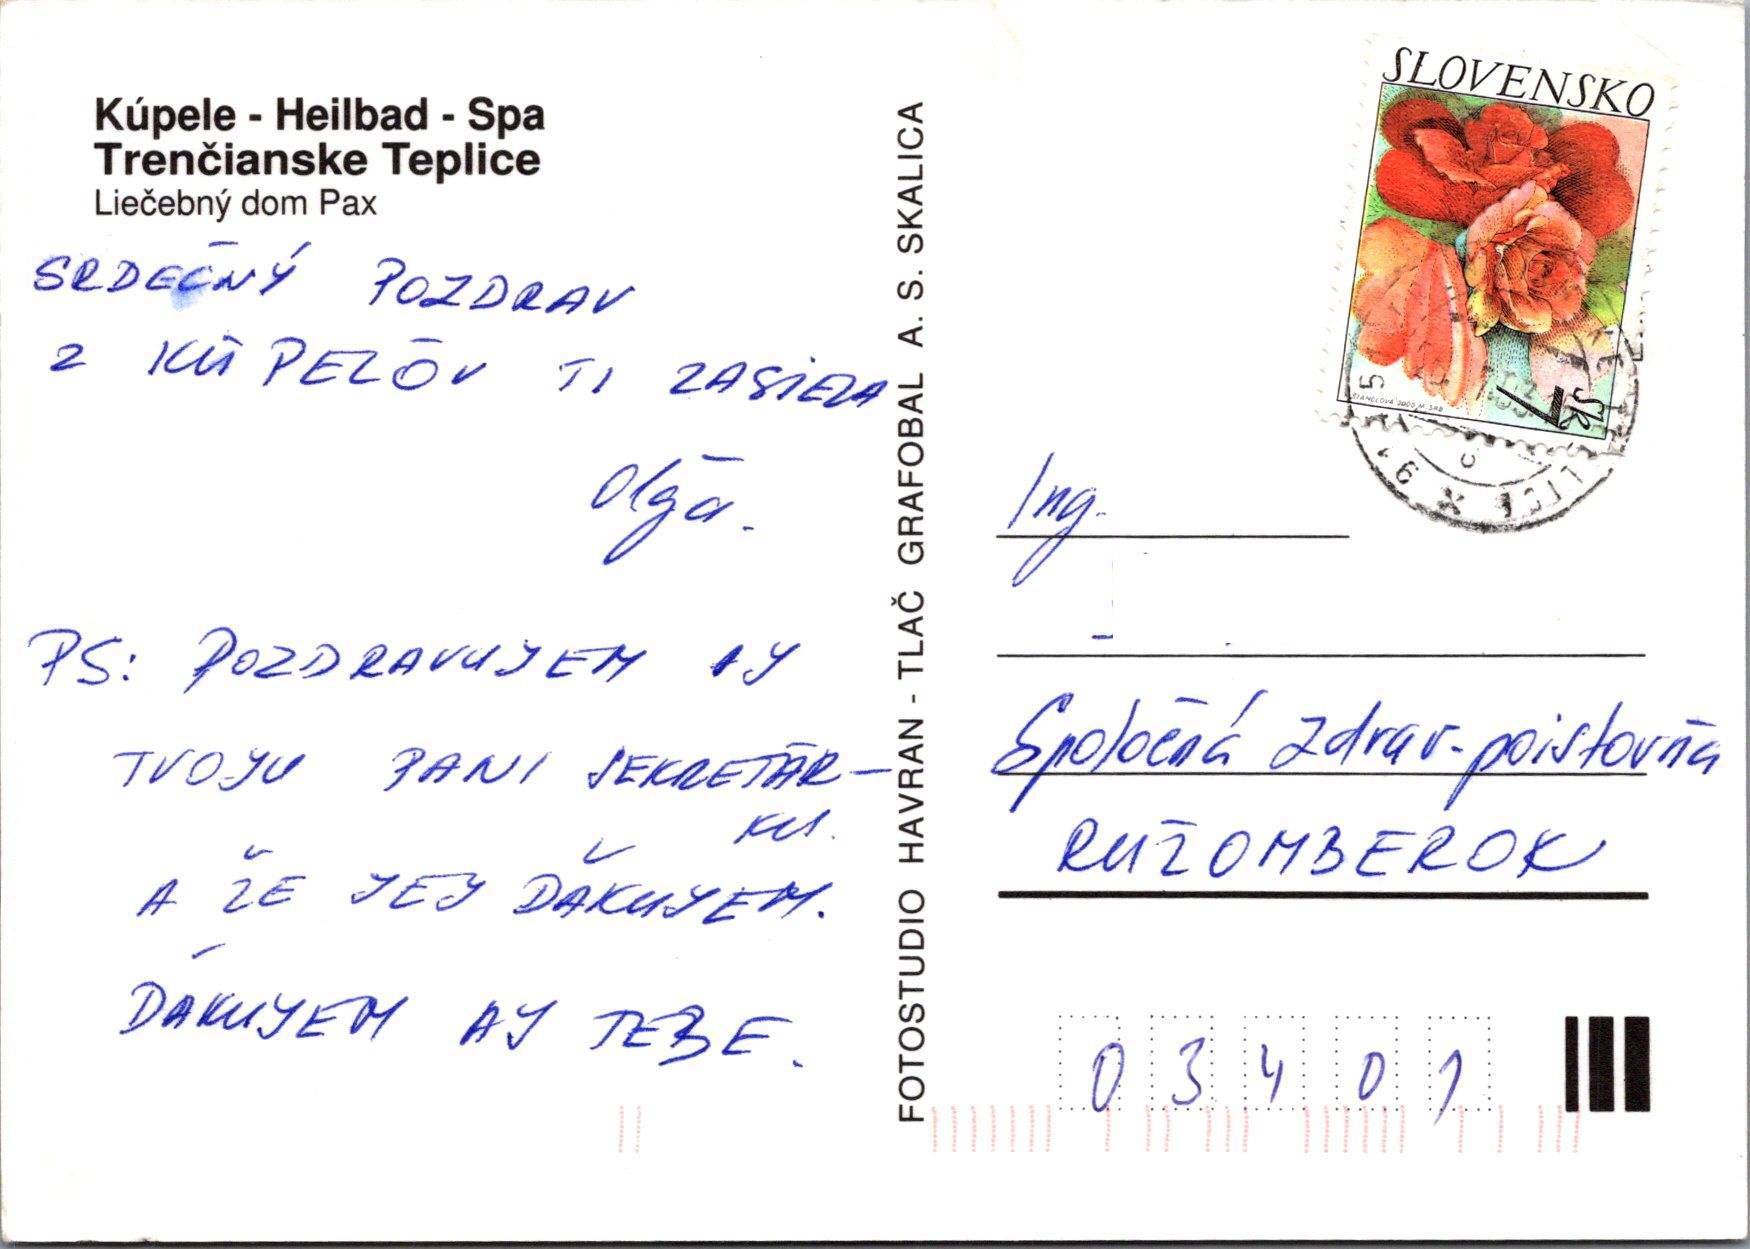 Kúpele - Heilbad - Spa
Trenčianske Teplice
Liečebný dom Pax
SRDEČNÝ POZDRAV
Z KÚPEĽOV TI ZASIELA
Oľga.
PS: POZDRAVUJEM AJ
TVOJU PANI SEKRETÁR-
KU.
A ŽE JEJ ĎAKUJEM.
ĎAKUJEM AJ TEBE.
FOTOSTUDIO HAVRAN - TLAČ GRAFOBAL A. S. SKALICA
SLOVENSKO
7 SK
Ing.
Spoločná zdrav. poistovňa
RUŽOMBEROK
03401